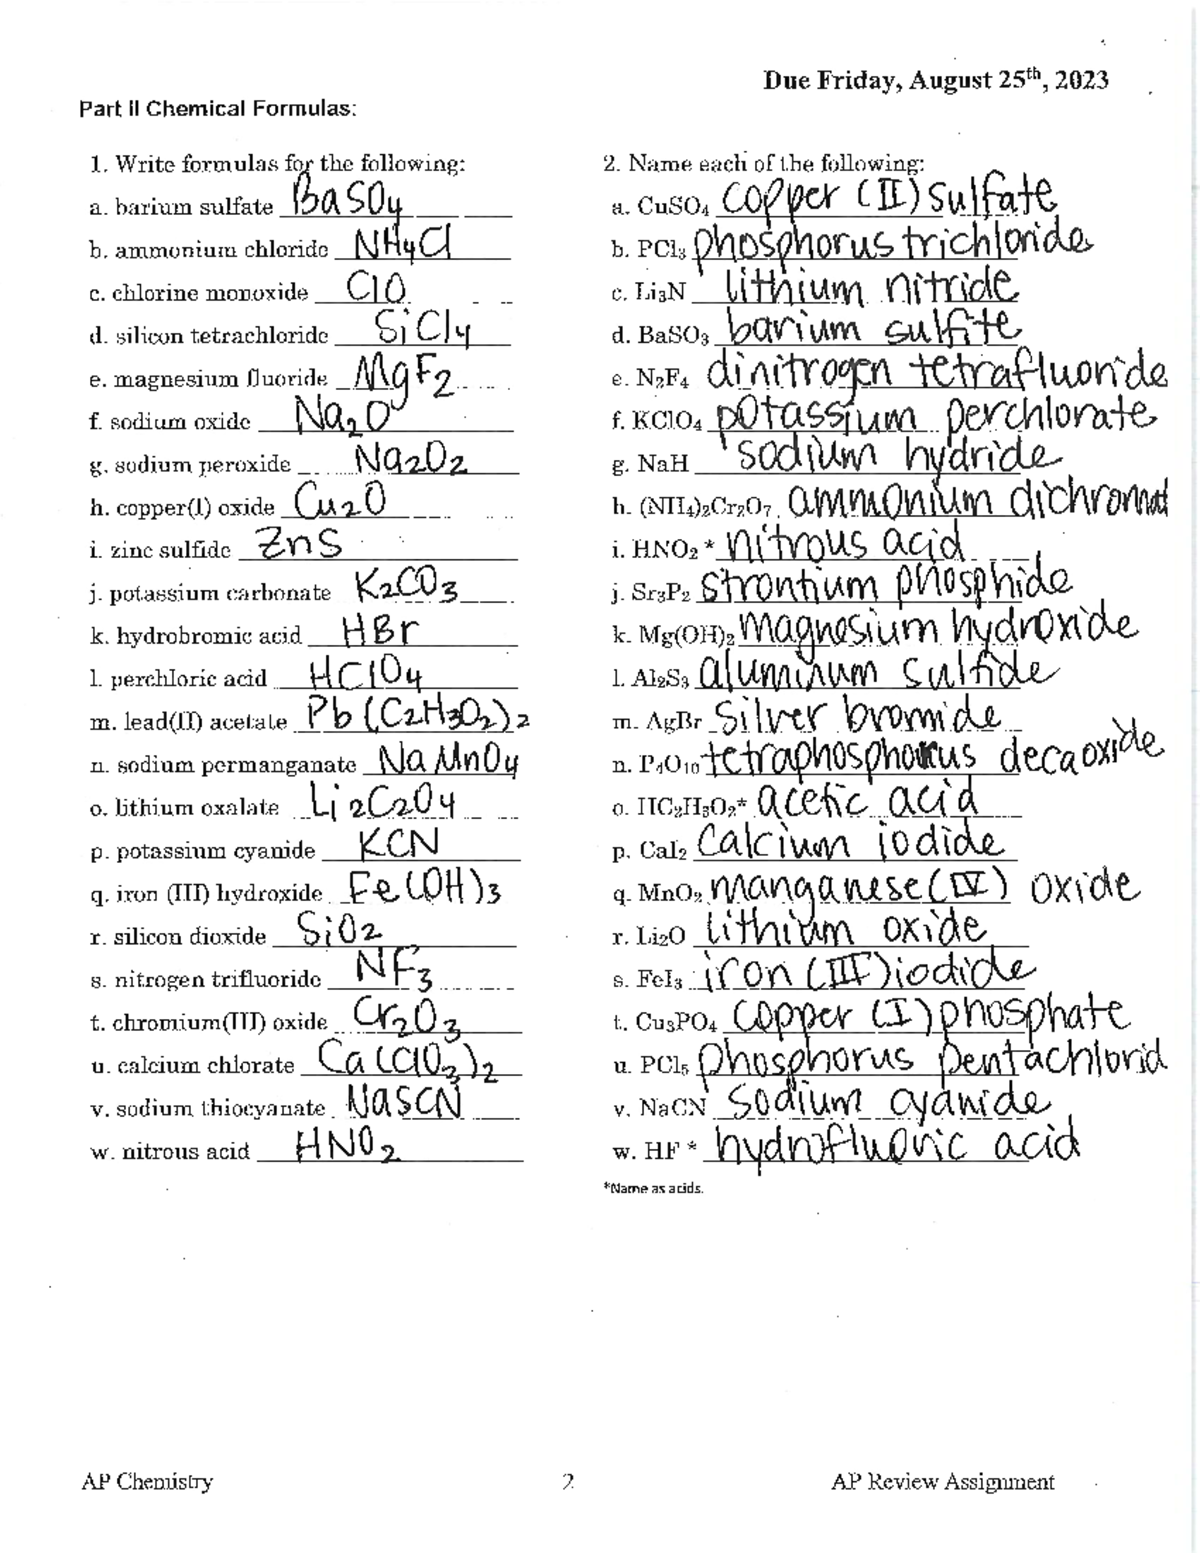 Due Friday, August 25th, 2023
Part II Chemical Formulas:
1. Write formulas for the following:
a. barium sulfate BaSO4
b. ammonium chloride NH4Cl
c. chlorine monoxide ClO
d. silicon tetrachloride SiCl4
e. magnesium fluoride MgF2
f. sodium oxide Na2O
g. sodium peroxide Na2O2
h. copper(I) oxide Cu2O
i. zinc sulfide ZnS
j. potassium carbonate K2CO3
k. hydrobromic acid HBr
l. perchloric acid HClO4
m. lead(II) acetate Pb(C2H3O2)2
n. sodium permanganate NaMnO4
o. lithium oxalate Li2C2O4
p. potassium cyanide KCN
q. iron (III) hydroxide Fe(OH)3
r. silicon dioxide SiO2
s. nitrogen trifluoride NF3
t. chromium(III) oxide Cr2O3
u. calcium chlorate Ca(ClO3)2
v. sodium thiocyanate NaSCN
w. nitrous acid HNO2
2. Name each of the following:
a. CuSO4 copper (II) sulfate
b. PCl3 phosphorus trichloride
c. Li3N lithium nitride
d. BaSO3 barium sulfite
e. N2F4 dinitrogen tetrafluoride
f. KClO4 potassium perchlorate
g. NaH sodium hydride
h. (NH4)2Cr2O7 ammonium
i. HNO2 * nitrous acid
j. Sr3P2 strontium phosphide
k. Mg(OH)2 magnesium hydroxide
l. Al2S3 aluminum sulfide
m. AgBr silver bromide
n. P4O10 tetraphosphorus decaoxide
o. HC2H3O2* acetic acid
p. CaI2 calcium iodide
q. MnO2 manganese (IV) oxide
r. Li2O lithium oxide
s. FeI3 iron (III) iodide
t. Cu3PO4 copper (I) phosphate
u. PCl5 phosphorus pentachlorid
v. NaCN sodium cyanide
w. HF * hydrofluoric acid
*Name as acids.
AP Chemistry
2
AP Review Assignment